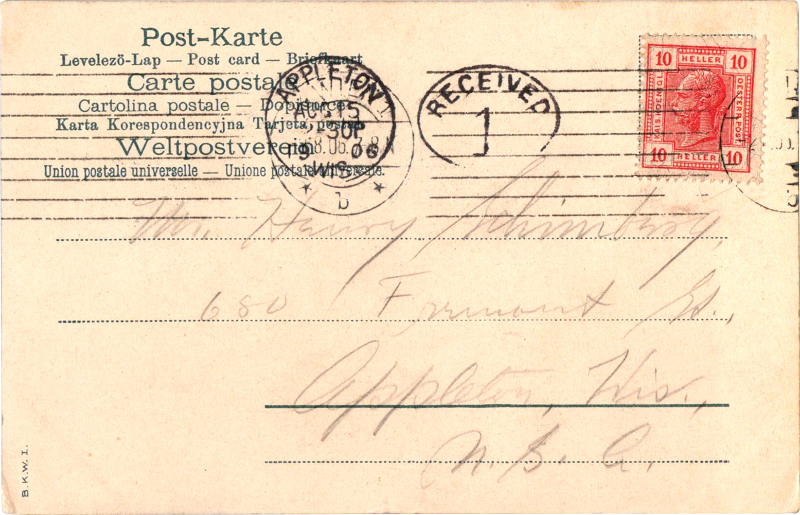 Post-Karte
Levelező-Lap — Post card — Briefkaart
Carte postale
Cartolina postale — Dopisnice
Karta Korespondencyjna Tarjeta postal
Weltpostverein
Union postale universelle — Unione postale universale.
APPLETON
AUG 15
1906
WIS.
* b *
RECEIVED
1
10 HELLER 10
10 HELLER 10
Mr. Henry Schimberg,
680 Fremont St.,
Appleton, Wis.,
U. S. A.
B.K.W.I.